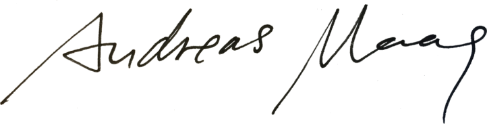 Andreas Maag